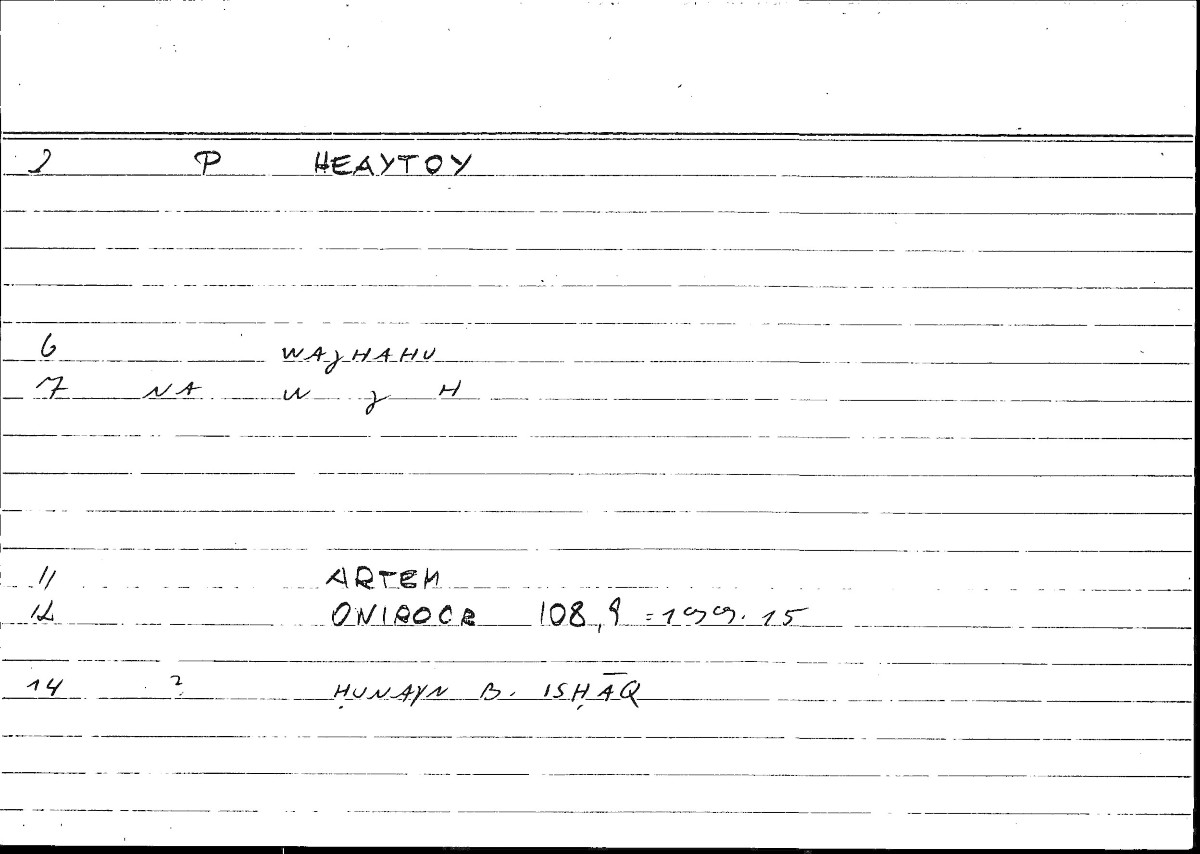 2 P HEAYTOY
6 WAJHAHU
7 NA W J H
11 ARTEM
12 ONIROCR 108,9 = 199.15
14 2 ḤUNAYN B. ISḤĀQ